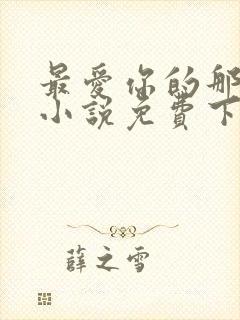 最爱你的那
小说免费下
薛之雪